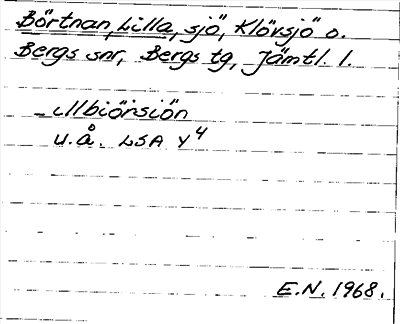 Börtnan, Lilla, sjö, Klövsjö o.
Bergs snr, Bergs tg, Jämtl. l.
Mbiörsiön
u.å. LSA Y4
E.N. 1968.